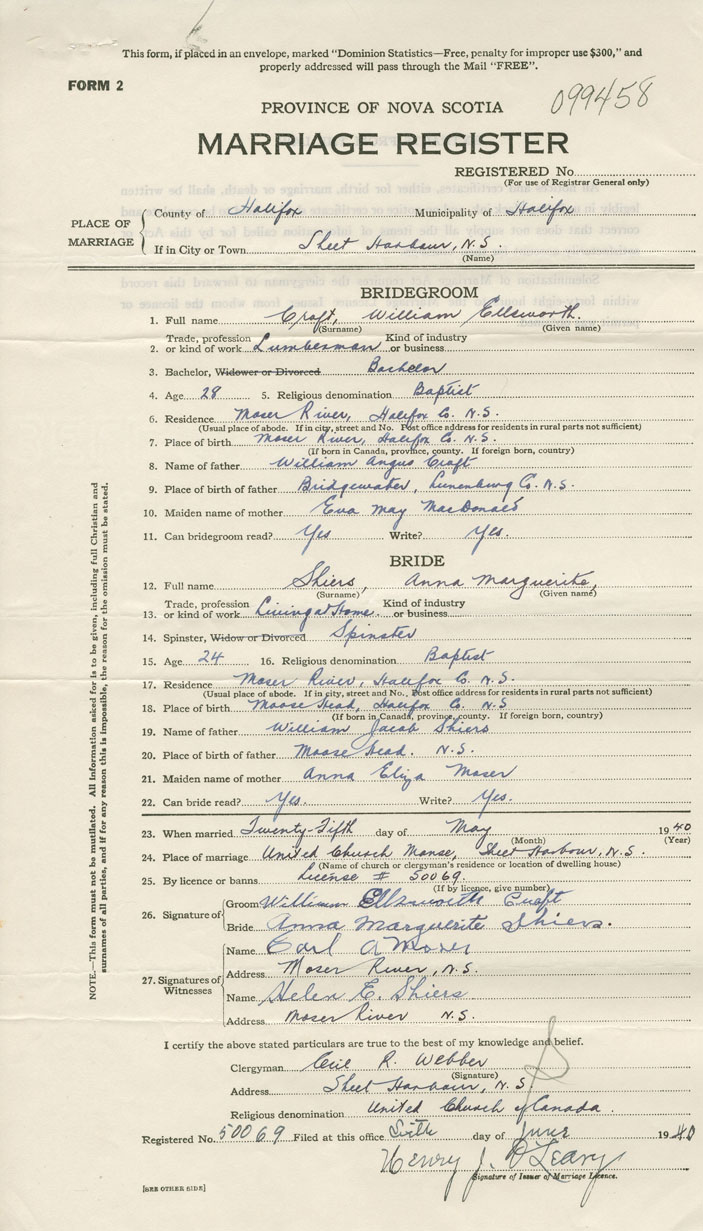 This form, if placed in an envelope, marked "Dominion Statistics—Free, penalty for improper use $300," and
properly addressed will pass through the Mail "FREE".
FORM 2
099458
PROVINCE OF NOVA SCOTIA
MARRIAGE REGISTER
REGISTERED No.
(For use of Registrar General only)
PLACE OF MARRIAGE
County of Halifax Municipality of Halifax
If in City or Town Sheet Harbour, N.S.
(Name)
BRIDEGROOM
1. Full name Croft, William Ellsworth.
(Surname) (Given name)
2. Trade, profession or kind of work Lumberman Kind of industry or business
3. Bachelor, Widower or Divorced Bachelor
4. Age 28 5. Religious denomination Baptist
6. Residence Moser River, Halifax Co. N.S.
(Usual place of abode. If in city, street and No. Post office address for residents in rural parts not sufficient)
7. Place of birth Moser River, Halifax Co. N.S.
(If born in Canada, province, county. If foreign born, country)
8. Name of father William Angus Croft
9. Place of birth of father Bridgewater, Lunenburg Co. N.S.
10. Maiden name of mother Eva May MacDonald
11. Can bridegroom read? Yes Write? Yes.
BRIDE
12. Full name Shiers, Anna Marguerite,
(Surname) (Given name)
13. Trade, profession or kind of work Living at Home. Kind of industry or business
14. Spinster, Widow or Divorced Spinster
15. Age 24 16. Religious denomination Baptist
17. Residence Moser River, Halifax Co. N.S.
(Usual place of abode. If in city, street and No. Post office address for residents in rural parts not sufficient)
18. Place of birth Moose Head, Halifax Co. N.S
(If born in Canada, province, county. If foreign born, country)
19. Name of father William Jacob Shiers
20. Place of birth of father Moose Head. N.S.
21. Maiden name of mother Anna Eliza Moser
22. Can bride read? Yes. Write? Yes.
23. When married Twenty-Fifth day of May 1940
(Month) (Year)
24. Place of marriage United Church Manse, Sheet Harbour, N.S.
(Name of church or clergyman's residence or location of dwelling house)
25. By licence or banns License # 50069.
(If by licence, give number)
26. Signature of
Groom William Ellsworth Croft
Bride Anna Marguerite Shiers.
27. Signatures of Witnesses
Name Carl A Moser
Address Moser River, N.S.
Name Helen E. Shiers
Address Moser River N.S.
I certify the above stated particulars are true to the best of my knowledge and belief.
Clergyman Cecil R. Webber
(Signature)
Address Sheet Harbour, N.S.
Religious denomination United Church of Canada.
Registered No. 50069 Filed at this office Sixth day of June 1940
Henry J. O'Leary
Signature of Issuer of Marriage Licence.
[SEE OTHER SIDE]
NOTE.—This form must not be mutilated. All information asked for is to be given, including full Christian and
surnames of all parties, and if for any reason this is impossible, the reason for the omission must be stated.